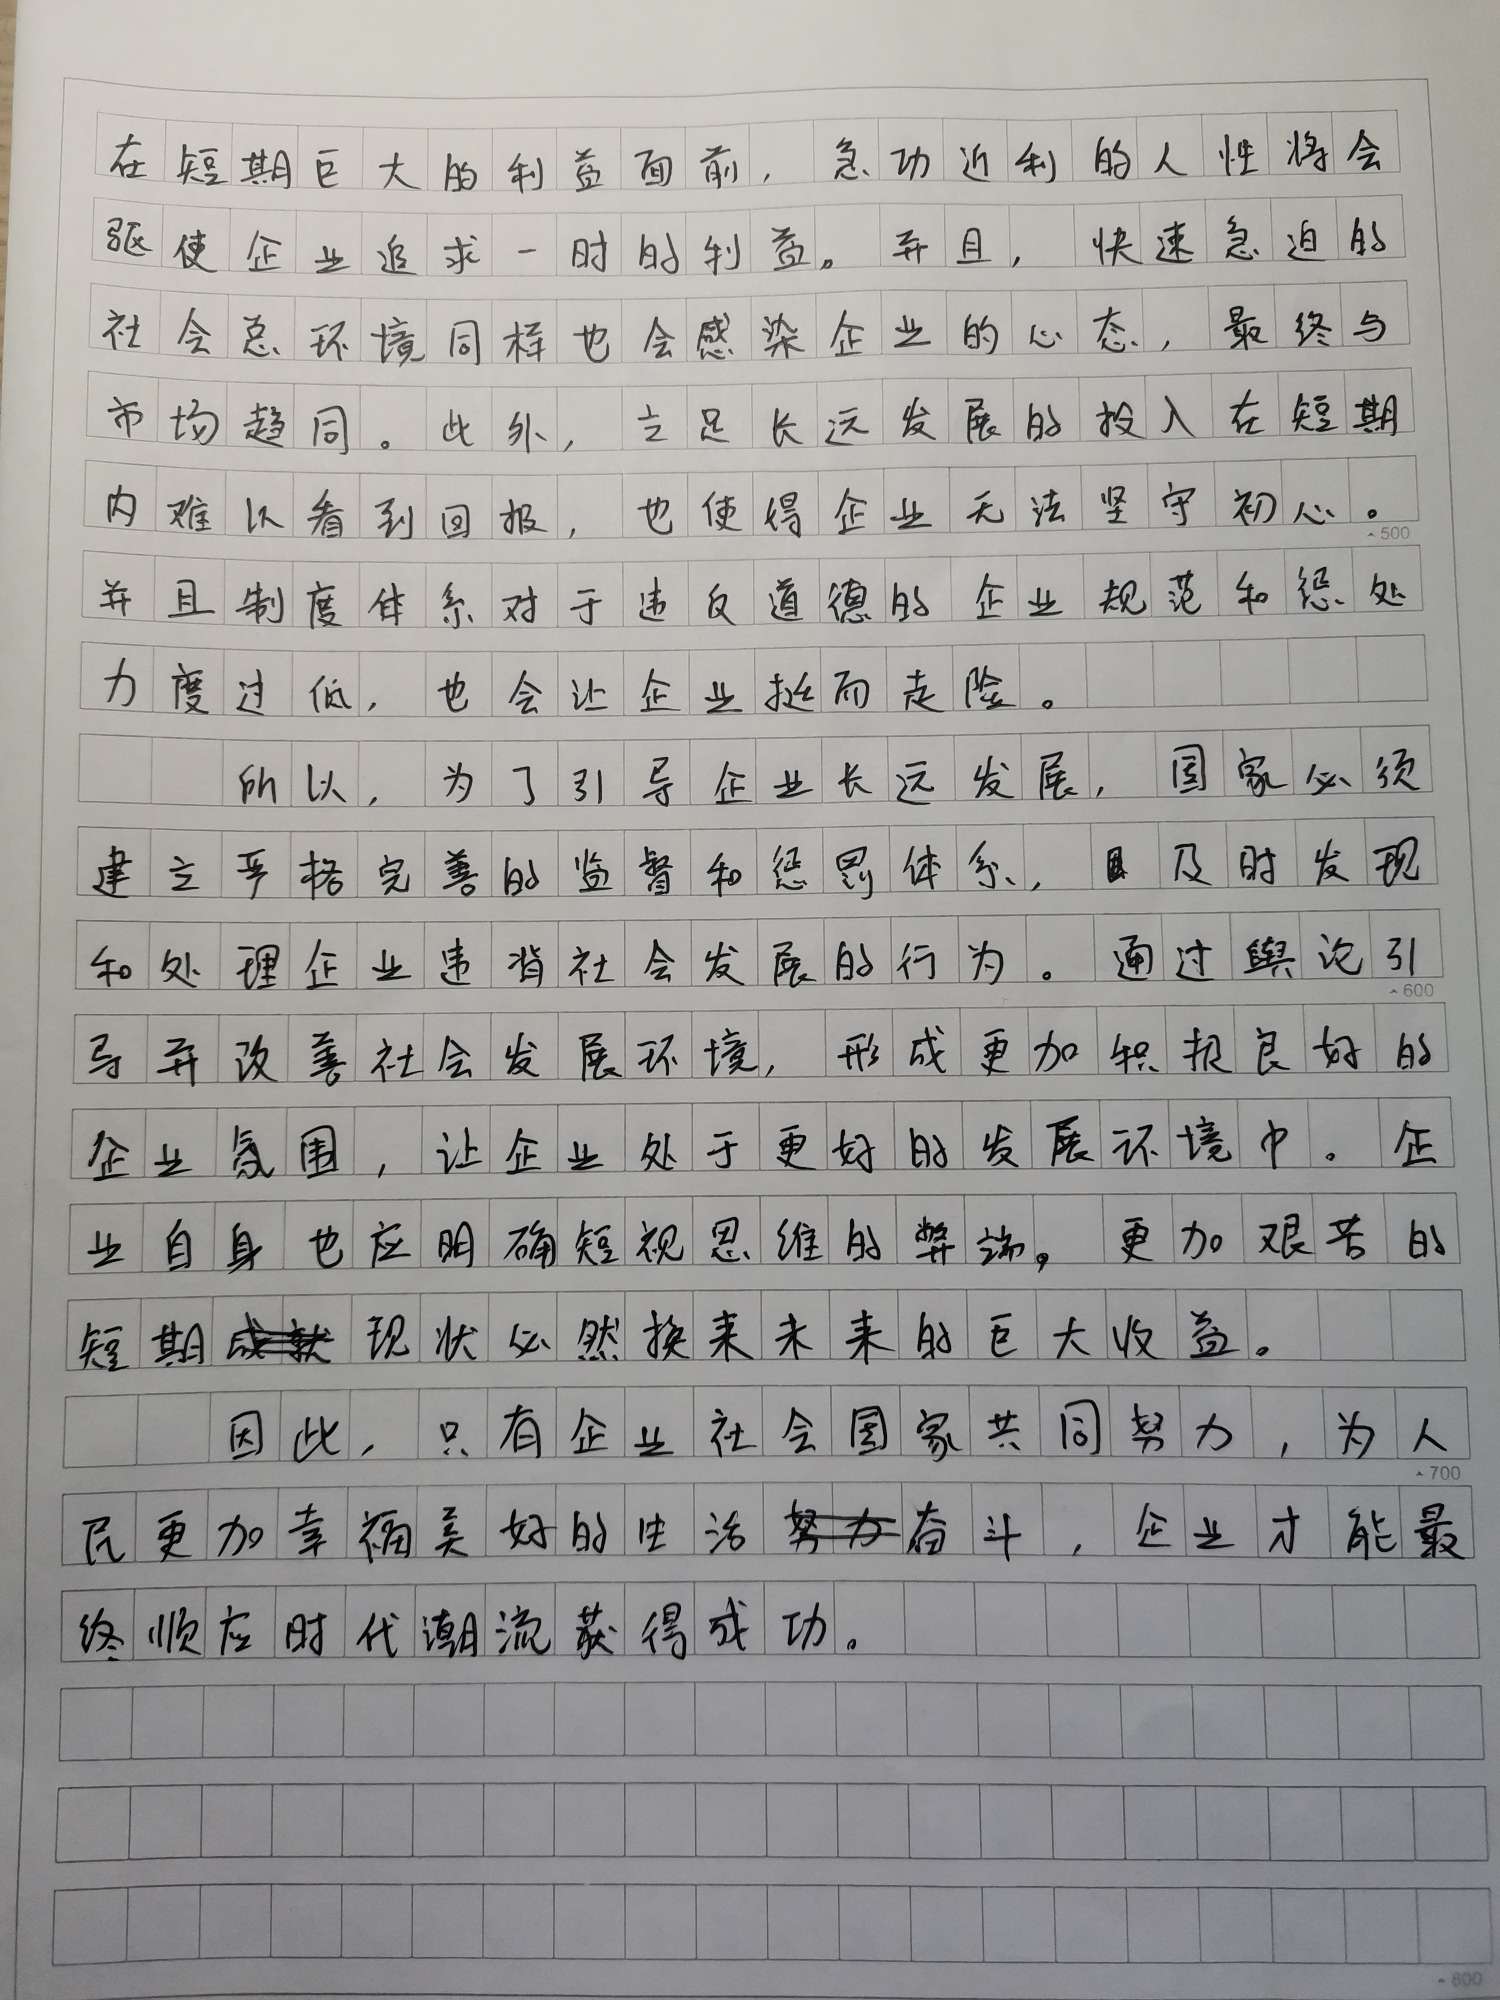 在短期巨大的利益面前，急功近利的人性将会
驱使企业追求一时的利益。并且，快速急迫的
社会总环境同样也会感染企业的心态，最终与
市场趋同。此外，立足长远发展的投入在短期
内难以看到回报，也使得企业无法坚守初心。
500
并且制度体系对于违反道德的企业规范和惩处
力度过低，也会让企业挺而走险。
所以，为了引导企业长远发展，国家必须
建立严格完善的监督和惩罚体系，及时发现
和处理企业违背社会发展的行为。通过舆论引
600
导并改善社会发展环境，形成更加积极良好的
企业氛围，让企业处于更好的发展环境中。企
业自身也应明确短视思维的弊端。更加艰苦的
短期现状必然换来未来的巨大收益。
因此，只有企业社会国家共同努力，为人
700
民更加幸福美好的生活奋斗，企业才能最
终顺应时代潮流获得成功。
800